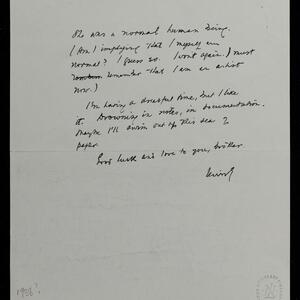 She was a normal human being.
(Am I implying that I myself am
normal? I guess so. I won't again. I must
remember that I am an artist
now.)
I'm having a dreadful time, but I like
it. Drowning in notes, in documentation.
Maybe I'll swim out of this sea of
paper.
Good luck and love to you, brother.
1956?